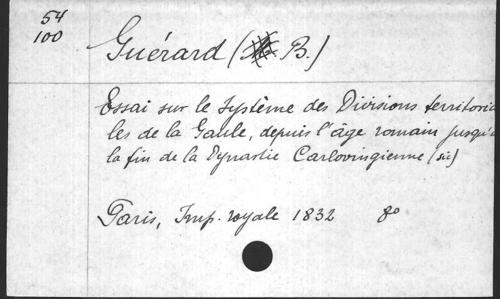 54
100
Guérard (B.)
Essai sur le Système des Divisions territoria
les de la Gaule, depuis l'âge romain jusqu'à
la fin de la Dynastie Carlovingienne (sic)
Paris, Imp. royale 1832 8o